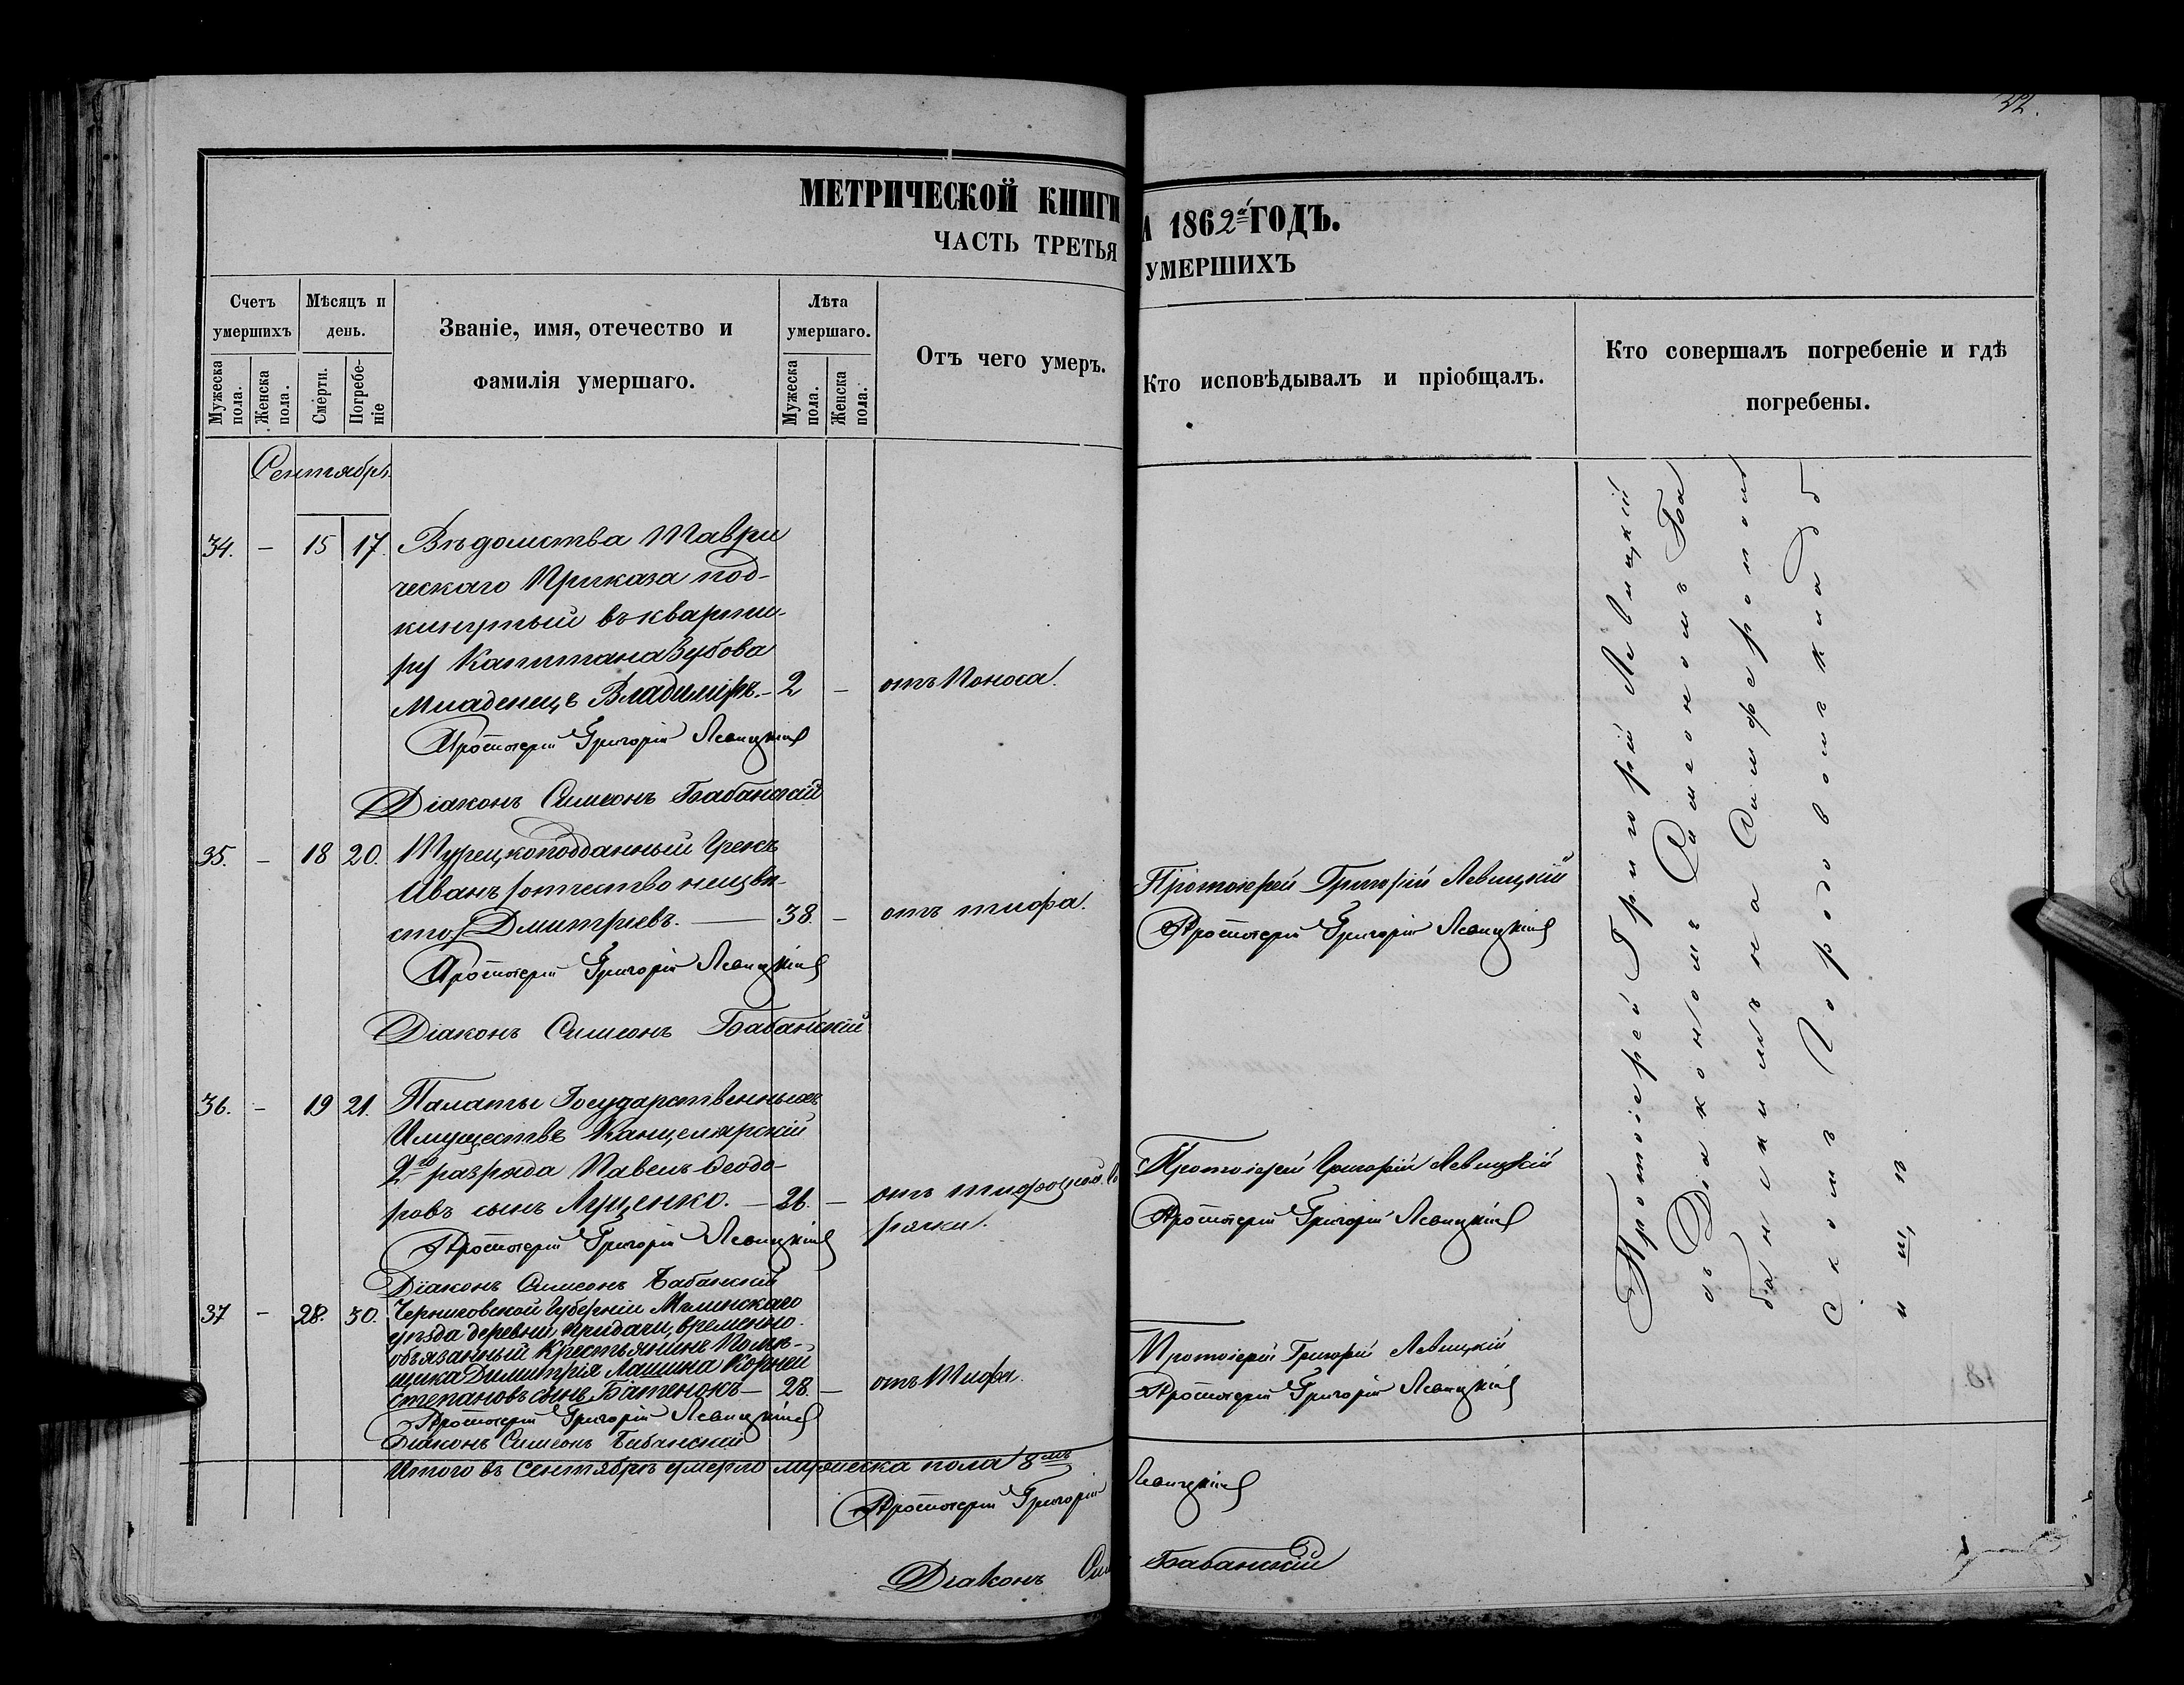 32.
МЕТРИЧЕСКОЙ КНИГИ
А 1862й ГОДЪ.
ЧАСТЬ ТРЕТЬЯ
УМЕРШИХЪ
Счетъ умершихъ
Мѣсяцъ и день.
Званіе, имя, отечество и фамилія умершаго.
Лѣта умершаго.
Отъ чего умеръ.
Кто исповѣдывалъ и пріобщалъ.
Кто совершалъ погребеніе и гдѣ погребены.
Мужеска пола.
Женска пола.
Смерти.
Погребеніе
Мужеска пола.
Женска пола.
Сентябрь.
34. – 15 17. Вѣдомства Таври
ческаго Приказа под-
кинутый въ кварти-
ру Капитана Зубова
Младенецъ Владиміръ. – 2 – отъ Поноса.
Протоіерей Григорій Левицкій
Діаконъ Симеонъ Бабанскій
35. – 18 20. Турецкоподданный Грекъ
Иванъ (отчество неизвѣ-
стно) Дмитріевъ. – 38. – отъ тифа.
Протоіерей Григорій Левицкій
Діаконъ Симеонъ Бабанскій
Протоіерей Григорій Левицкій
Протоіерей Григорій Левицкій
36. – 19 21. Палаты Государственныхъ
Имуществъ Канцелярскій
2го разряда Павелъ Феодо-
ровъ сынъ Луценко. – 26. – отъ тифозной. го
рячки.
Протоіерей Григорій Левицкій
Діаконъ Симеонъ Бабанскій
Протоіерей Григорій Левицкій
Протоіерей Григорій Левицкій
37 – 28. 30. Черниговской Губерніи Мглинскаго
уѣзда деревни Придачи, временно-
обязанный крестьянинъ Помѣ-
щика Димитрія Лашина Корней
степановъ сынъ Батенокъ – 28. – отъ Тифа.
Протоіерей Григорій Левицкій
Діаконъ Симеонъ Бабанскій
Протоіерей Григорій Левицкій
Протоіерей Григорій Левицкій
Протоіерей Григорій Левицкій
съ Діакономъ Симеономъ Ба
банскимъ на Симферополь
скомъ Городовомъ кладб
ищѣ
Итого въ Сентябрѣ умерло мужеска пола 8мь
Протоіерей Григорій Левицкій
Діаконъ Сим Бабанскій